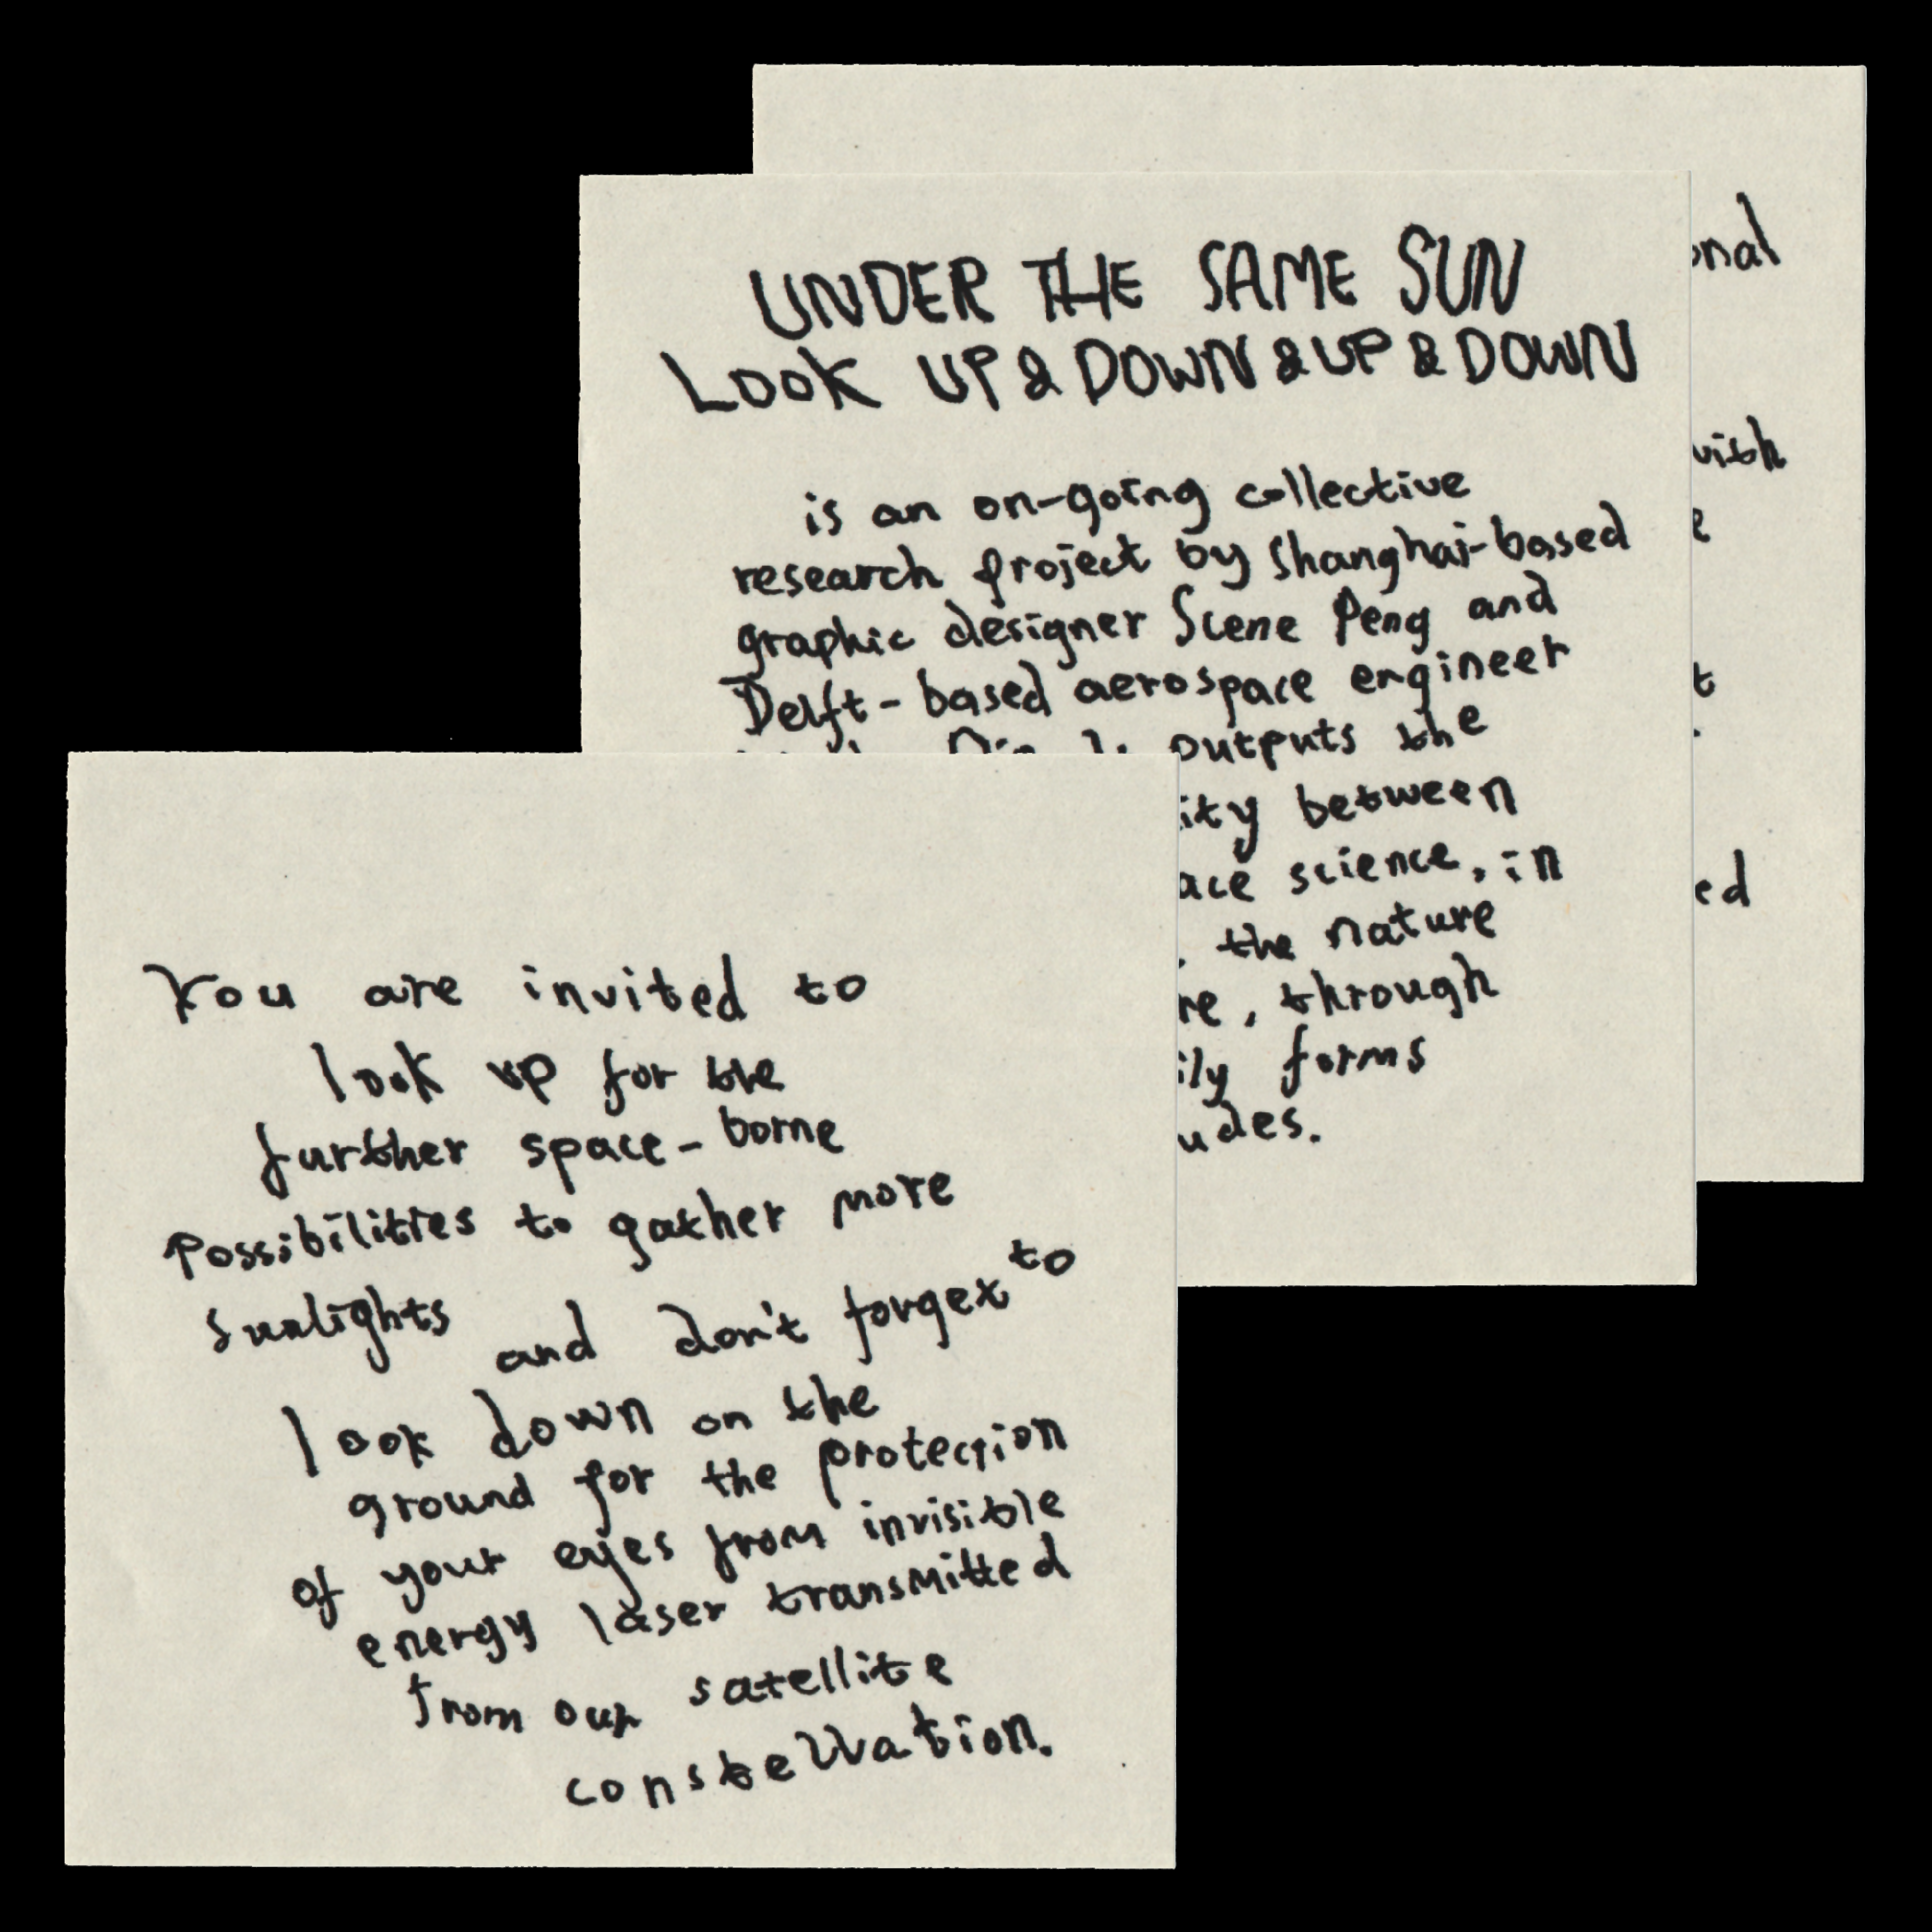 UNDER THE SAME SUN
LOOK UP & DOWN & UP & DOWN
is an on-going collective
research project by Shanghai-based
graphic designer Scene Peng and
Delft-based aerospace engineer
outputs the
between
science, in
the nature
through
forms
with
You are invited to
look up for the
further space-borne
possibilities to gather more
sunlights and don't forget to
look down on the
ground for the protection
of your eyes from invisible
energy laser transmitted
from our satellite
constellation.